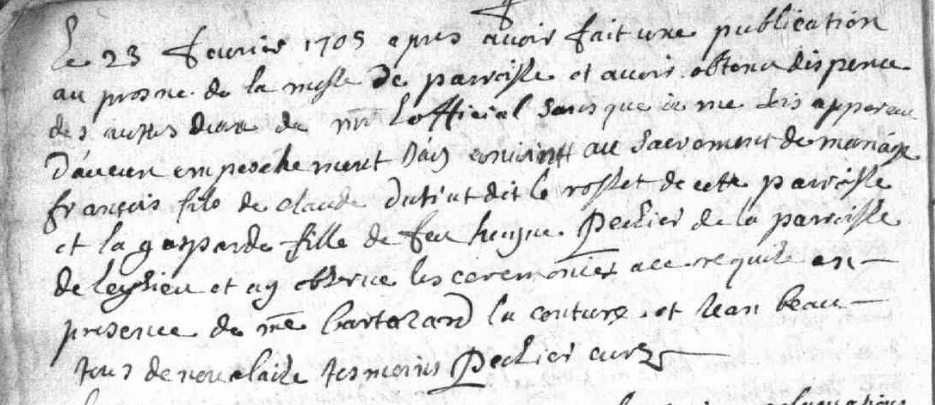 Le 23 fevrier 1705 apres avoir fait une publication
au prosne de la messe de parroisse et avoir obtenu dispence
des autres deux de mr Lofficial sans que je me sois apperceu
Daucun empeschement Jay conioint au sacrement de mariage
françois fils de claude dit le rosset de cette parroisse
et la gasparde fille de feu hugue Peclier de la parroisse
de leyssieu et ay observe les ceremonies a ce requise en
presence de me la couture et Jean beau
de tesmoins Peclier curé